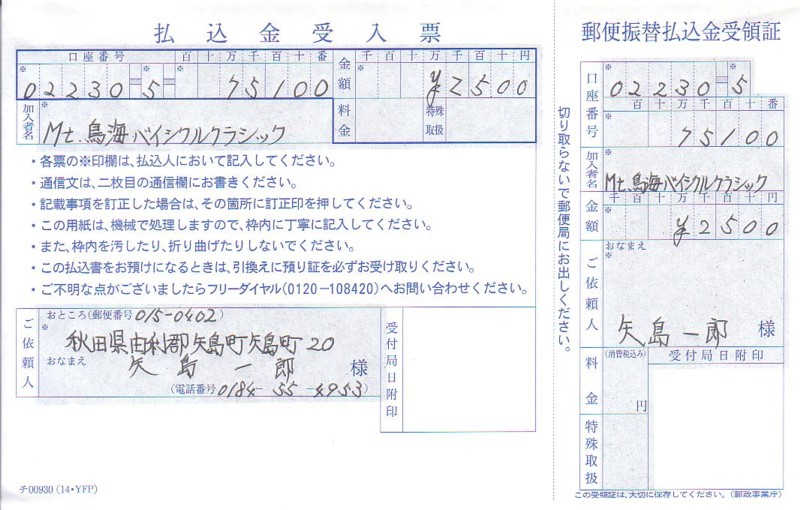 払込金受入票
口座番号 百十万千百十番
※
02230=5=75100
金額 千百十万千百十円
※
¥2500
料金
特殊取扱
加入者名
※
Mt.鳥海バイシクルクラシック
・各票の※印欄は、払込人において記入してください。
・通信文は、二枚目の通信欄にお書きください。
・記載事項を訂正した場合は、その箇所に訂正印を押してください。
・この用紙は、機械で処理しますので、枠内に丁寧に記入してください。
・また、枠内を汚したり、折り曲げたりしないでください。
・この払込書をお預けになるときは、引換えに預り証を必ずお受け取りください。
・ご不明な点がございましたらフリーダイヤル(0120−108420)へお問い合わせください。
ご依頼人
おところ(郵便番号 015-0402)
※
秋田県由利郡矢島町矢島町20
おなまえ 矢島 一郎 様
(電話番号 0184-55-4953)
受付局日附印
チ00930 (14・YFP)
切り取らないで郵便局にお出しください。
郵便振替払込金受領証
口座番号
※
02230=5
百十万千百十番
※
75100
加入者名
※
Mt.鳥海バイシクルクラシック
金額
千百十万千百十円
※
¥2500
ご依頼人
おなまえ
※
矢島一郎 様
料金
(消費税込み)
円
特殊取扱
受付局日附印
この受領証は、大切に保存してください。(郵政事業庁)